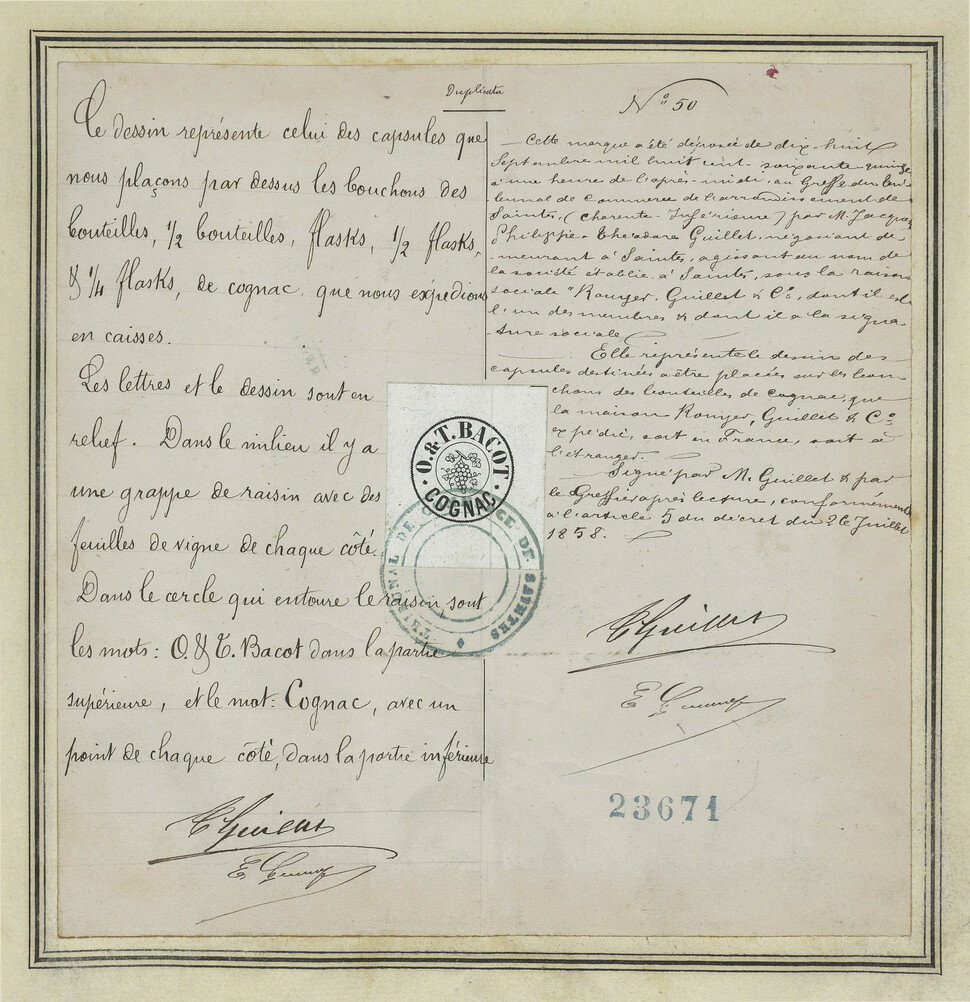 Duplicata
Ce dessin représente celui des capsules que
nous plaçons par dessus les bouchons des
bouteilles, 1/2 bouteilles, flasks, 1/2 flasks,
& 1/4 flasks, de cognac que nous expédions
en caisses.
Les lettres et le dessin sont en
relief. Dans le milieu il y a
une grappe de raisin avec des
feuilles de vigne de chaque côté.
Dans le cercle qui entoure le raisin sont
les mots: O. & T. Bacot dans la partie
supérieure, et le mot: Cognac, avec un
point de chaque côté, dans la partie inférieure
T Guillet
O. & T. BACOT
COGNAC
TRIBUNAL DE COMMERCE DE SAINTES
No 50
Cette marque a été déposée de dix-huit
Septembre mil huit cent soixante quinze
à une heure de l'après-midi, au Greffe du tri-
bunal de Commerce de l'arrondissement de
Saintes, (Charente-Inférieure) par M. Jacques
Philippe-Théodore Guillet, négociant de-
meurant à Saintes, agissant au nom de
la société établie à Saintes, sous la raison
sociale "Rouyer, Guillet & Co, dont il est
l'un des membres & dont il a la signa-
ture sociale.
Elle représente le dessin des
capsules destinées à être placées sur les bou-
chons des bouteilles de cognac, que
la maison Rouyer, Guillet & Co
expédie, soit en France, soit à
l'étranger.
Signé par M. Guillet & par
le Greffier après lecture, conformément
à l'article 5 du décret du 26 Juillet
1858.
T Guillet
23671